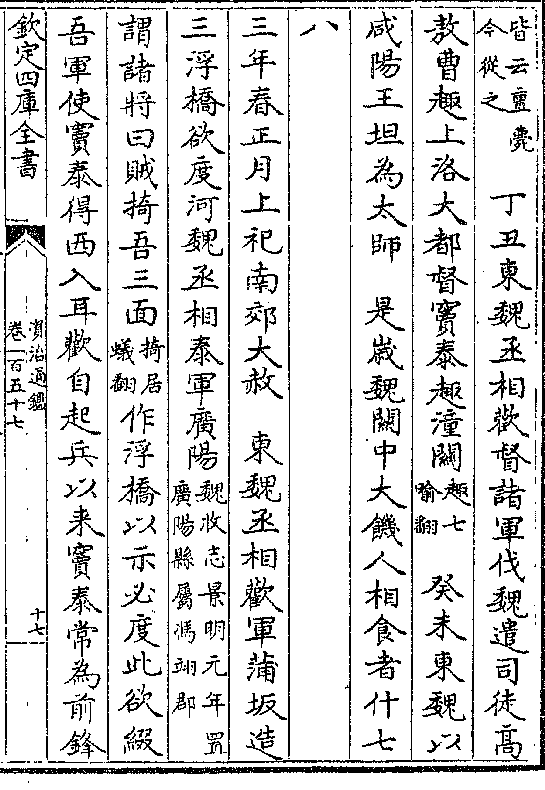 皆云亶㲉
今從之
丁丑東魏丞相歡督諸軍伐魏遣司徒高
敖曹趣上洛大都督竇泰趣潼關
趣七
喻翻
癸未東魏以
咸陽王坦為太師　是嵗魏關中大饑人相食者什七
八
三年春正月上祀南郊大赦　東魏丞相歡軍蒲坂造
三浮橋欲度河魏丞相泰軍廣陽
魏收志景明元年置
廣陽縣屬馮翊郡
謂諸將曰賊掎吾三面
掎居
蟻翻
作浮橋以示必度此欲綴
吾軍使竇泰得西入耳歡自起兵以来竇泰常為前鋒
欽定四庫全書
資治通鑑
卷一百五十七
十七